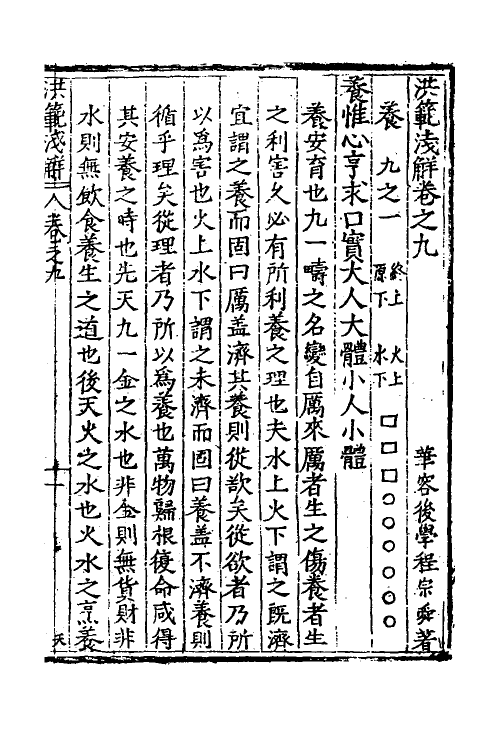 洪範淺解卷之九
華容後學程宗舜著
養 九之一 終上 原下 火上 水下 □□□○○○○○○
養惟心亨求口實大人大體小人小體
養安育也九一疇之名變自厲來厲者生之傷養者生
之利害久必有所利養之理也夫水上火下謂之既濟
宜謂之養而固曰厲盖濟其養則從欲矣從欲者乃所
以為害也火上水下謂之未濟而固曰養盖不濟養則
循乎理矣從理者乃所以為養也萬物歸根復命咸得
其安養之時也先天九一金之水也非金則無貨財非
水則無飲食養生之道也後天火之水也火水之烹養
洪範淺解 卷之九 一